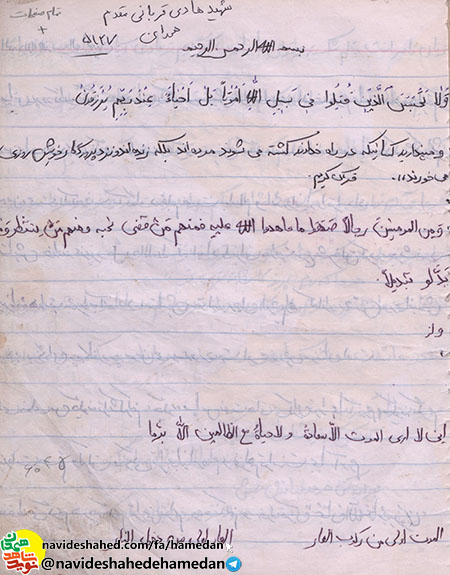 تمام صفحات
شهید هادی قربانی مقدم
همدان
بسم الله الرحمن الرحیم
وَلا تَحْسَبَنَ الَّذینَ قُتِلُوا فی سَبیلِ اللهِ اَمْواتاً بَل اَحْیاءُ عِنْدَ رَبِّهِم یُرْزَقُونْ
و مپندارید کسانیکه در راه خداوند کشته می شوند مرده اند بلکه زنده اند و نزد پروردگار خویش روزی
می خورند،، قرآن کریم.
وَمِنَ المومنینَ رجالاً صدقوا ما عاهدوا الله علیه فمنهم مَنْ قضی نحبه و منهم مَنْ ینتظر وَ ما
بَدَّلو تبدیلاً.
و از
اِنی لا اری الموت الاّ سعادة و لا حیاةُ مع الظالمین الاّ برما
الموت اولی من رکوب العار
navideshahed.com/fa/hamedan
@navideshahedehamedan